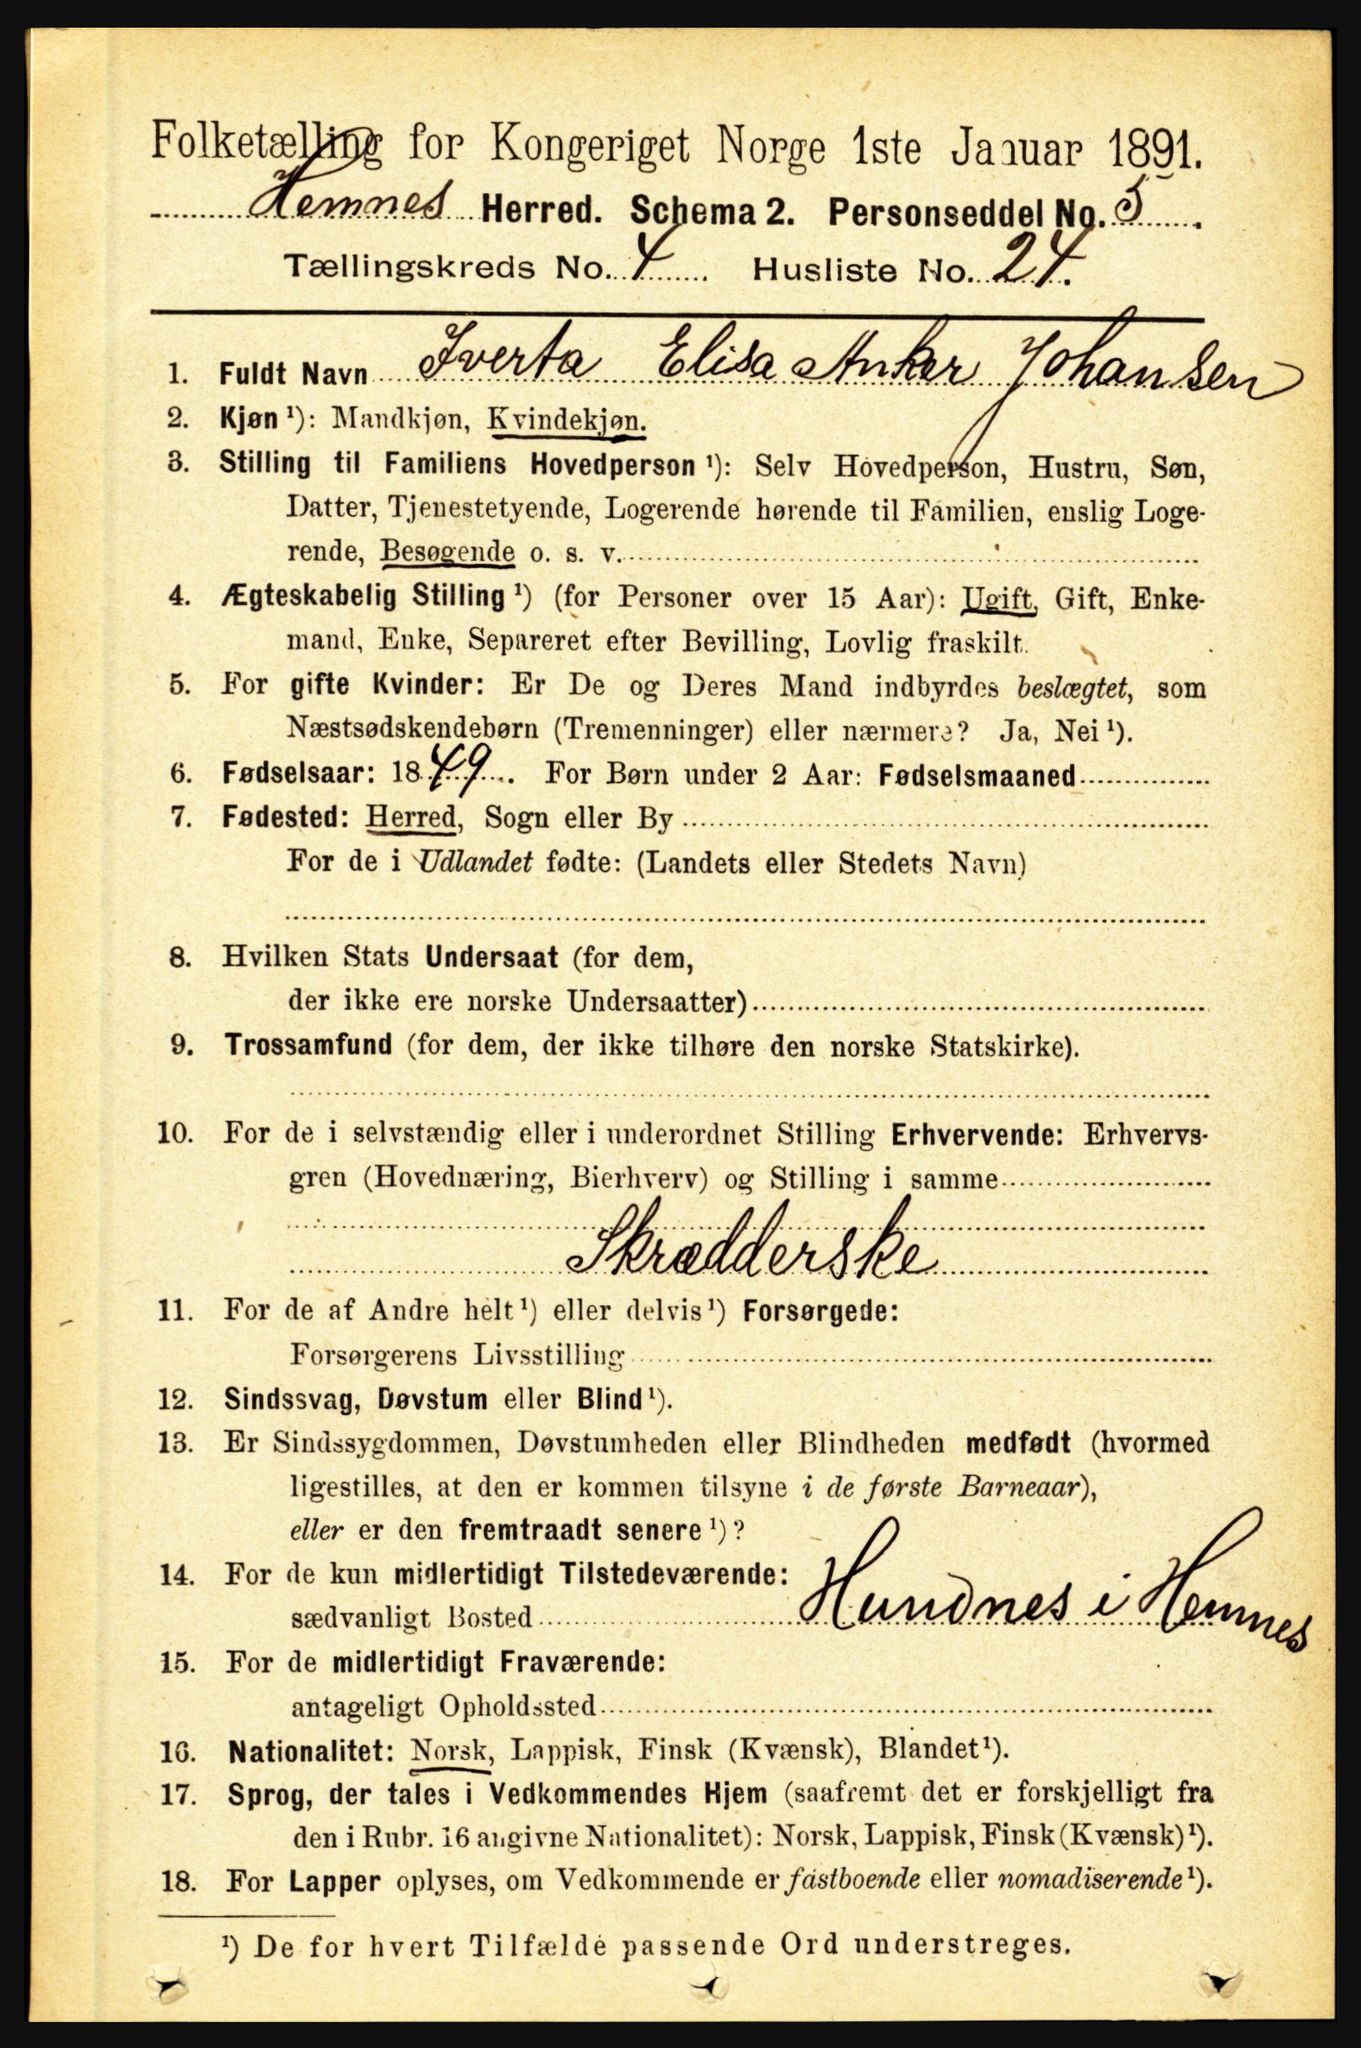 Folketælling for Kongeriget Norge 1ste Januar 1891.
Hemnes Herred. Schema 2. Personseddel No. 5.
Tællingskreds No. 4 Husliste No. 24.
1. Fuldt Navn Iverta Elisa Anker Johansen
2. Kjøn ¹): Mandkjøn, Kvindekjøn.
3. Stilling til Familiens Hovedperson ¹): Selv Hovedperson, Hustru, Søn,
Datter, Tjenestetyende, Logerende hørende til Familien, enslig Loge-
rende, Besøgende o. s. v.
4. Ægteskabelig Stilling ¹) (for Personer over 15 Aar): Ugift, Gift, Enke-
mand, Enke, Separeret efter Bevilling, Lovlig fraskilt.
5. For gifte Kvinder: Er De og Deres Mand indbyrdes beslægtet, som
Næstsødskendebørn (Tremenninger) eller nærmere? Ja, Nei ¹).
6. Fødselsaar: 1849. For Børn under 2 Aar: Fødselsmaaned
7. Fødested: Herred, Sogn eller By
For de i Udlandet fødte: (Landets eller Stedets Navn)
8. Hvilken Stats Undersaat (for dem,
der ikke ere norske Undersaatter)
9. Trossamfund (for dem, der ikke tilhøre den norske Statskirke).
10. For de i selvstændig eller i underordnet Stilling Erhvervende: Erhvervs-
gren (Hovednæring, Bierhverv) og Stilling i samme
Skrædderske
11. For de af Andre helt ¹) eller delvis ¹) Forsørgede:
Forsørgerens Livsstilling
12. Sindssvag, Døvstum eller Blind ¹).
13. Er Sindssygdommen, Døvstumheden eller Blindheden medfødt (hvormed
ligestilles, at den er kommen tilsyne i de første Barneaar),
eller er den fremtraadt senere ¹)?
14. For de kun midlertidigt Tilstedeværende:
sædvanligt Bosted Hundnes i Hemnes
15. For de midlertidigt Fraværende:
antageligt Opholdssted
16. Nationalitet: Norsk, Lappisk, Finsk (Kvænsk), Blandet ¹).
17. Sprog, der tales i Vedkommendes Hjem (saafremt det er forskjelligt fra
den i Rubr. 16 angivne Nationalitet): Norsk, Lappisk, Finsk (Kvænsk) ¹).
18. For Lapper oplyses, om Vedkommende er fastboende eller nomadiserende ¹).
¹) De for hvert Tilfælde passende Ord understreges.